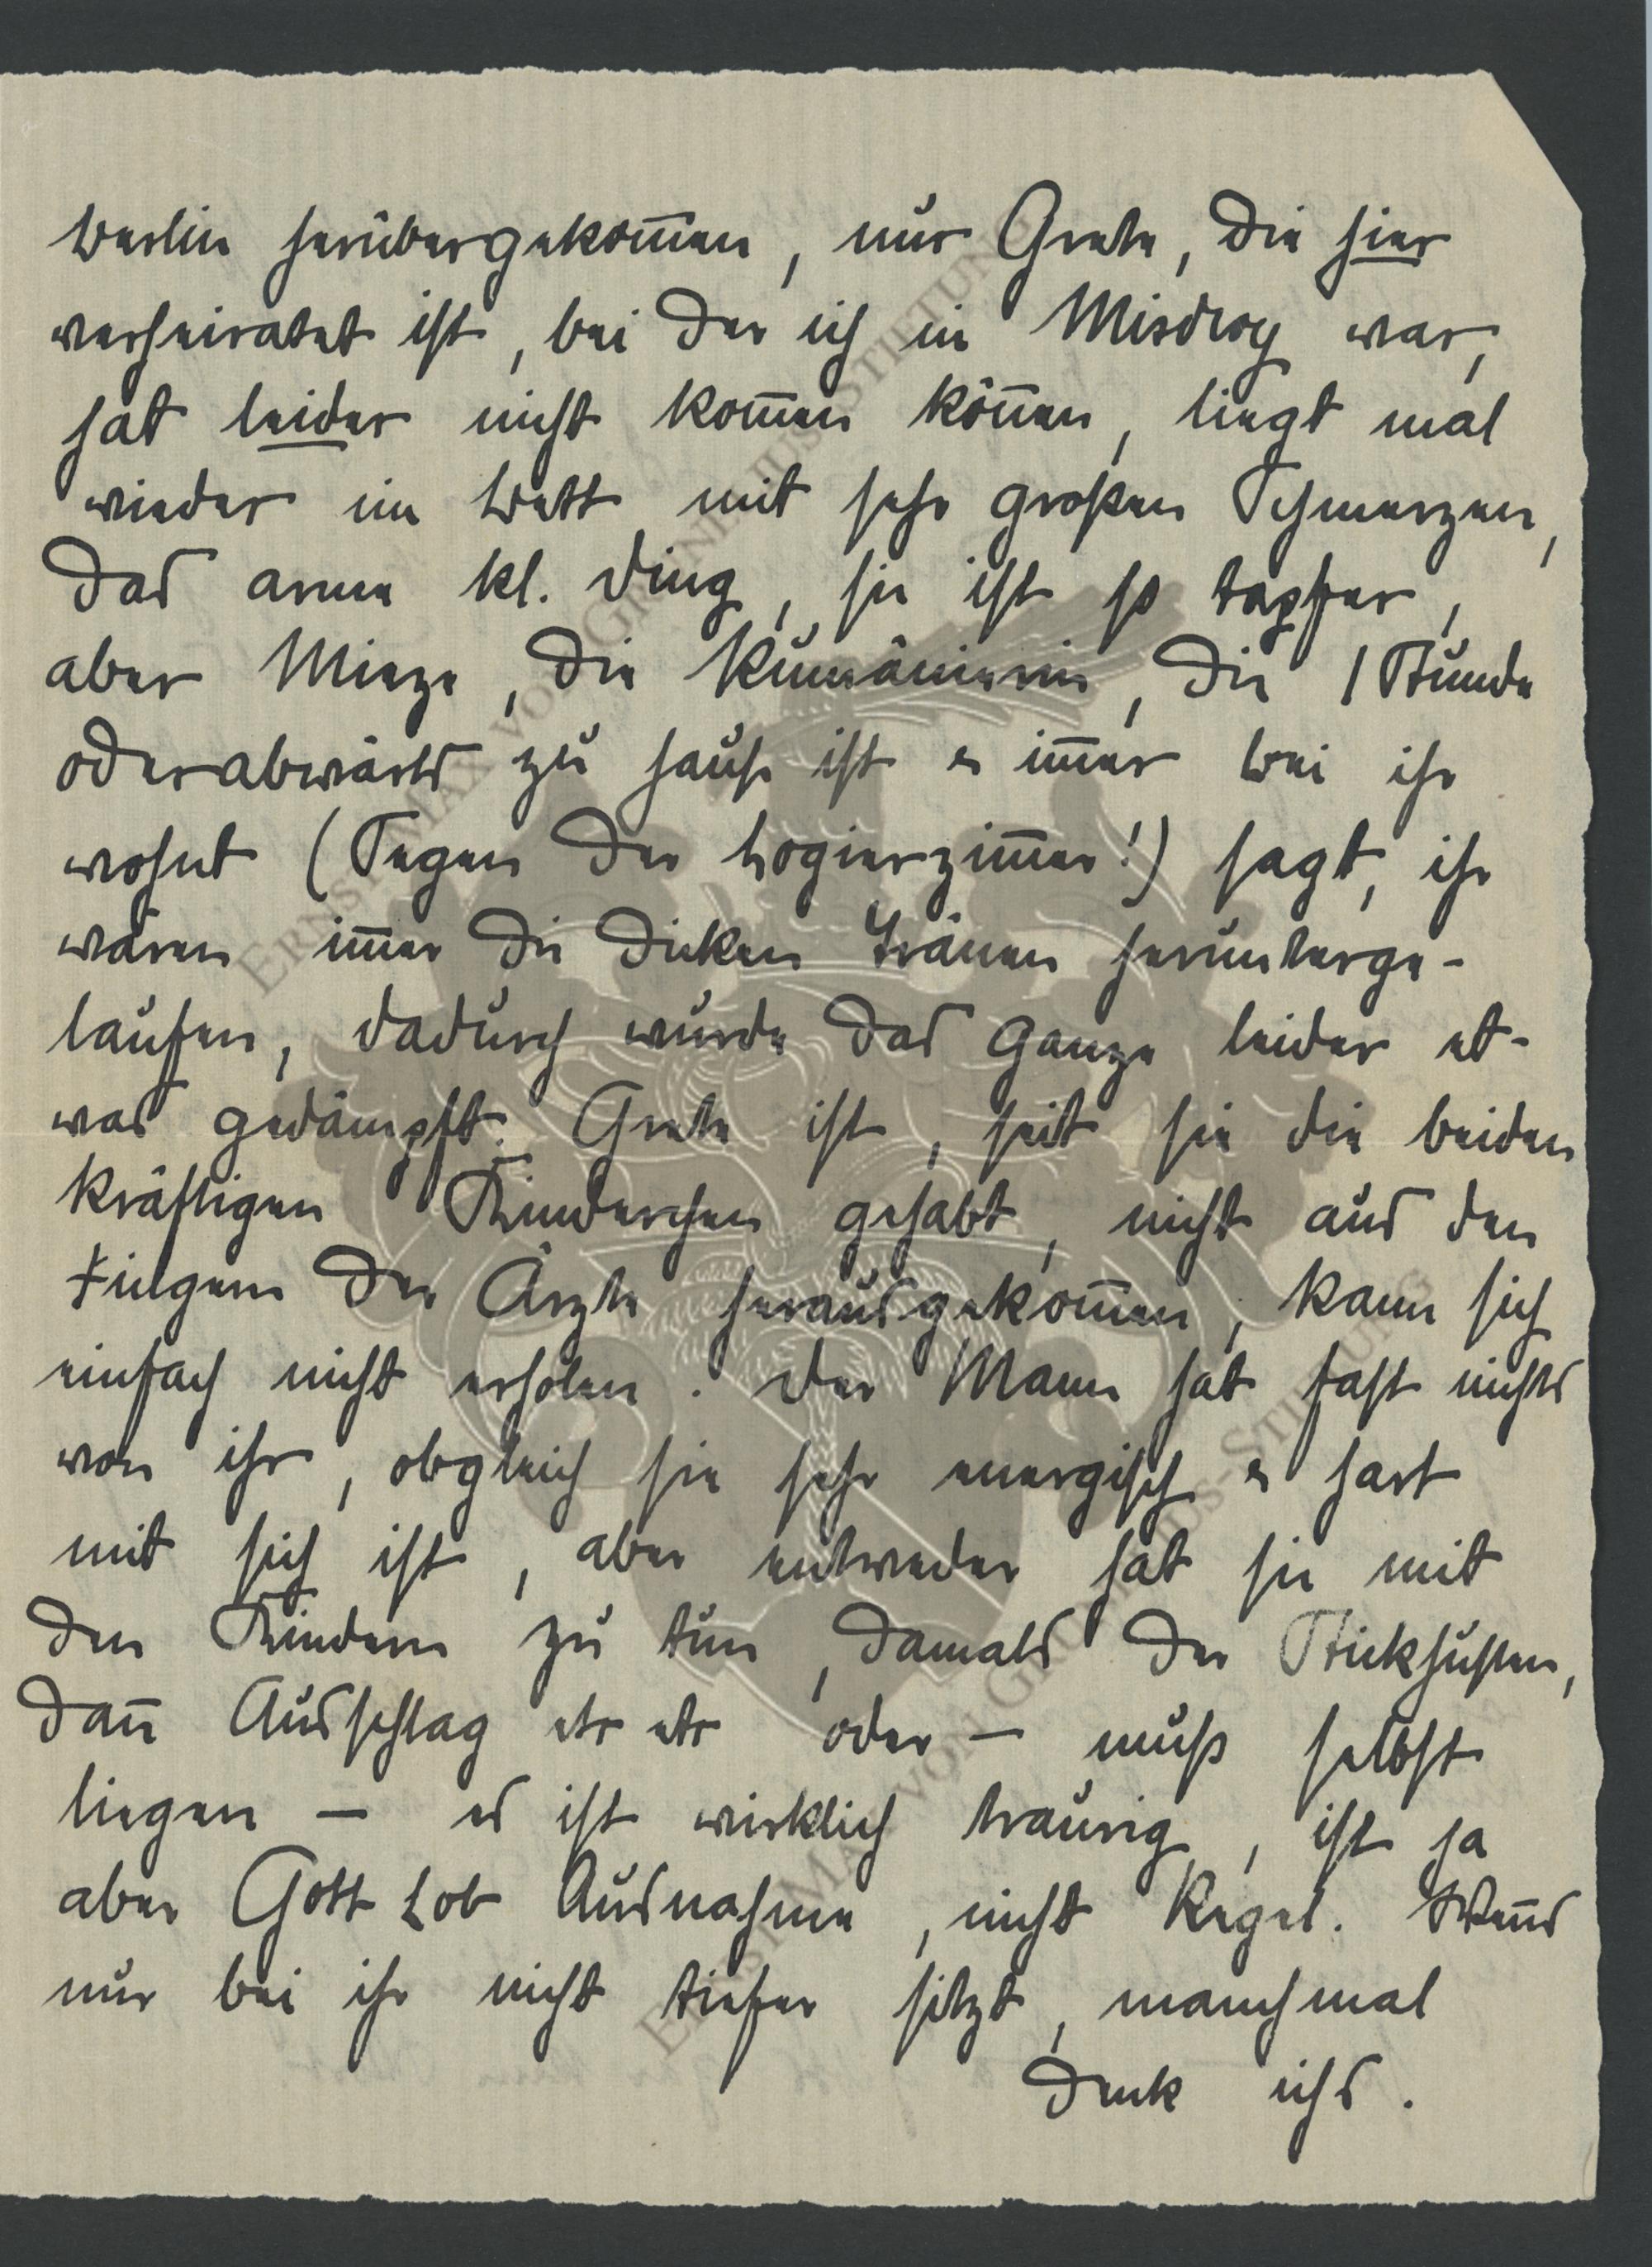 Berlin herübergekom̅en, nur Grete, die hier
verheiratet ist, bei der ich in Misdroy war,
hat leider nicht kom̅en kön̅en, liegt mal
wieder im Bett mit sehr großen Schmerzen,
das arme kl. Ding, sie ist so tapfer,
aber Mieze, die Rumänierin, die 1 Stunde
oderabwärts zu hause ist u im̅er bei ihr
wohnt (Segen der Logierzim̅er!) sagt, ihr
wären im̅er die dicken Tränen herunterge-
laufen, dadurch wurde das Ganze leider et-
was gedämpft. Grete ist, seit sie die beiden
kräftigen Kinderchen gehabt, nicht aus den
Fingern der Ärzte herausgekom̅en, kann sich
einfach nicht erholen. Der Mann hat fast nichts
von ihr, obgleich sie sehr energisch u hart
mit sich ist, aber entweder hat sie mit
den Kindern zu tun, damals der Stickhusten,
dan̅ Ausschlag etc etc oder – muß selbst
liegen – es ist wirklich traurig, ist ja
aber Gott Lob Ausnahme, nicht Regel. Wen̅s
nur bei ihr nicht tiefer sitzt, manchmal
denk ichs.
ERNST MAX VON GRUNELIUS-STIFTUNG
ERNST MAX VON GRUNELIUS-STIFTUNG